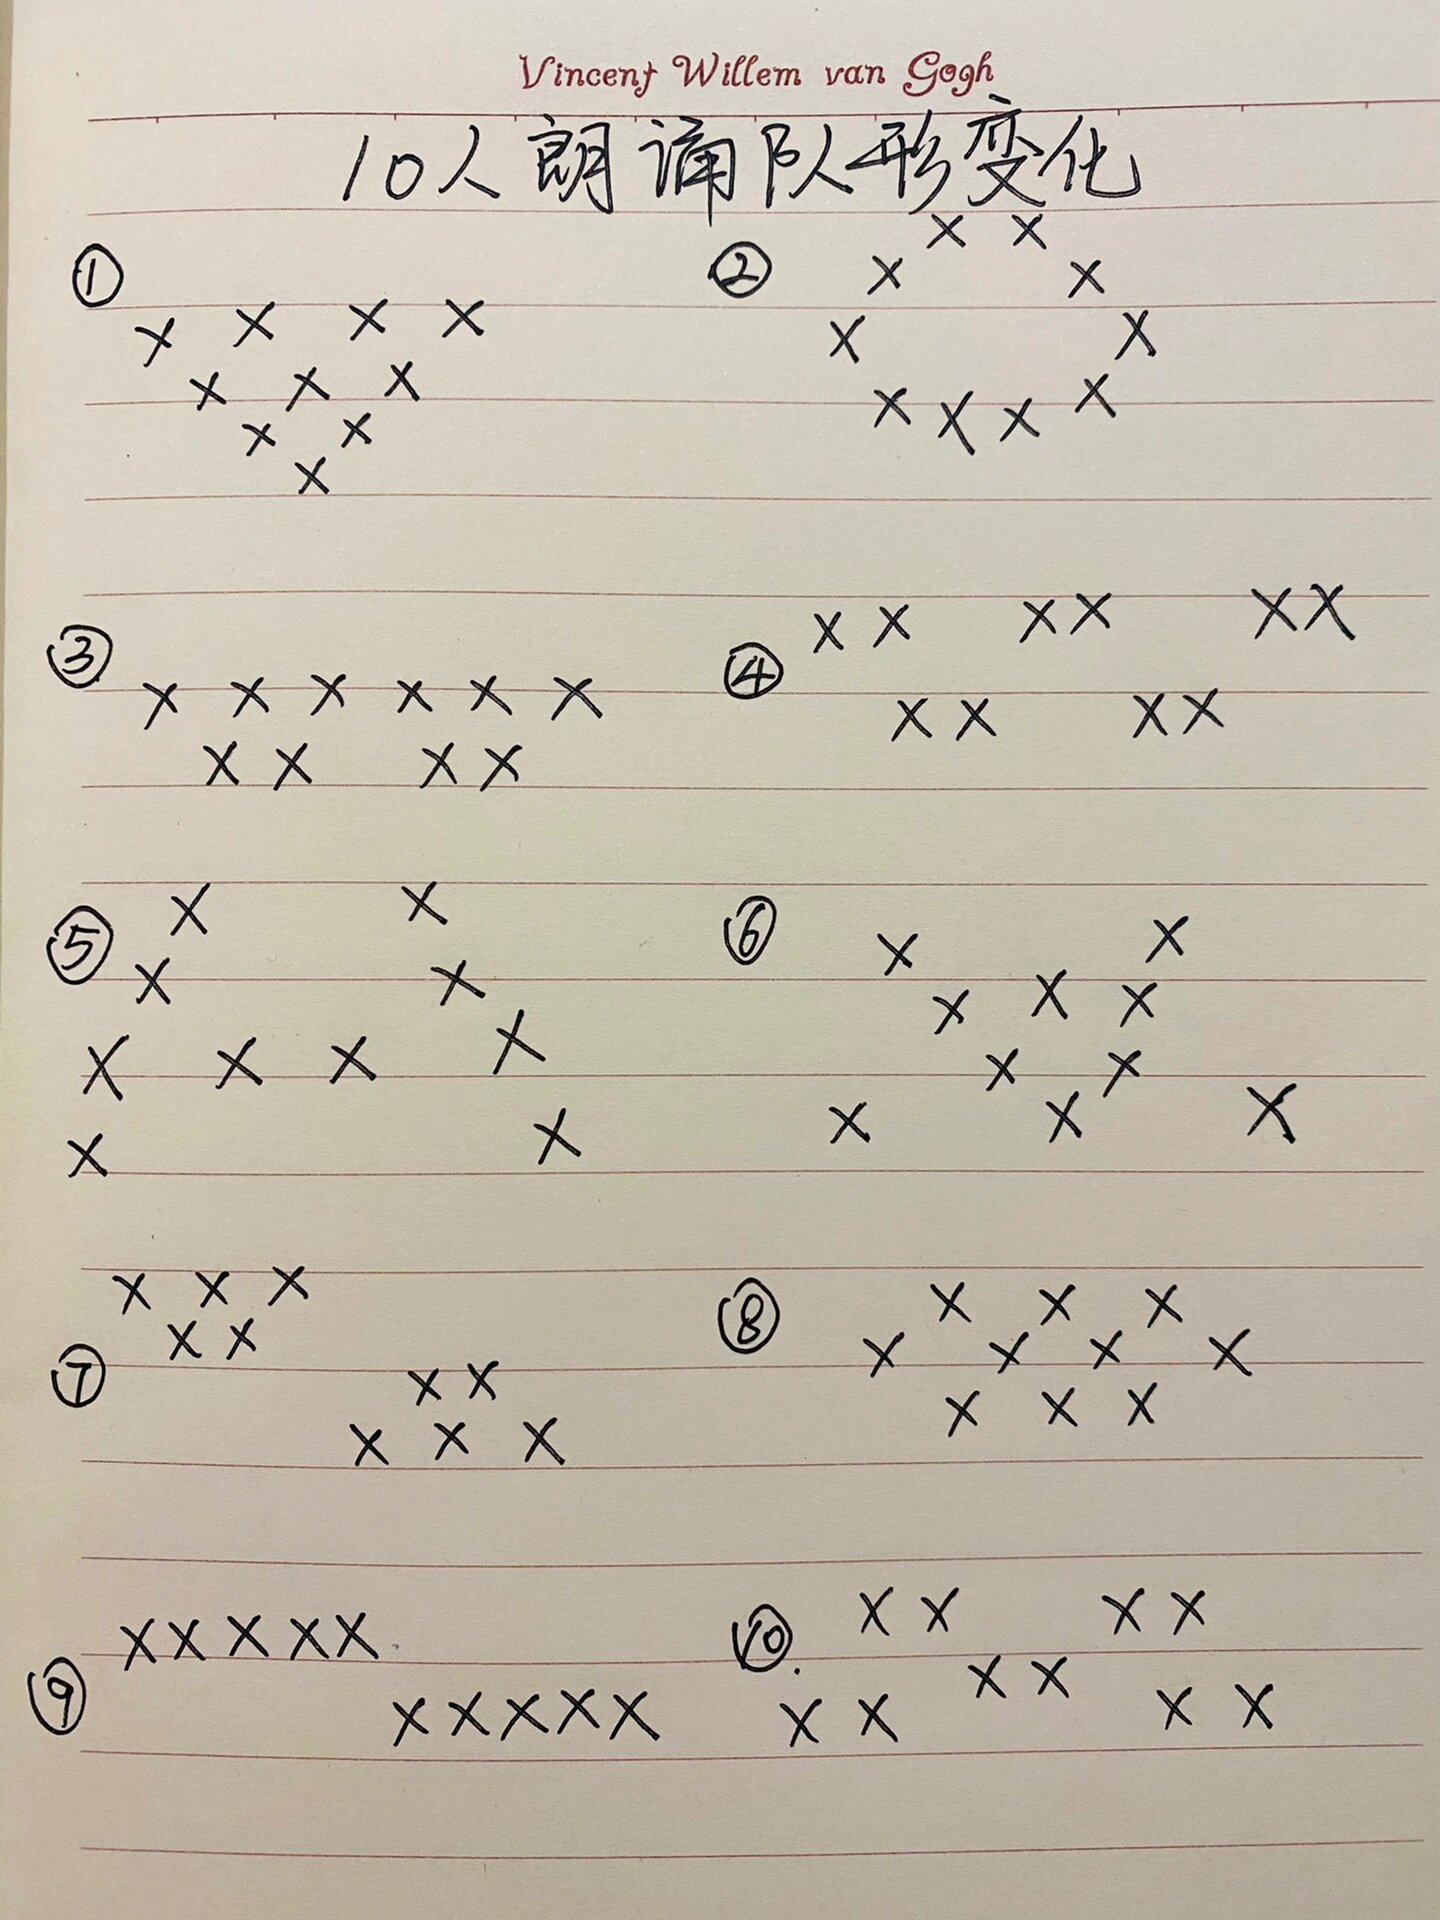 Vincent Willem van Gogh
10人朗诵队形变化
①
②
X X
X X
X X X X
X X
X X X
X X X X
X X
X
③
X X X X X X
X X X X
④
X X X X X X
X X X X
⑤
X X
X X
X X X X
X X
⑥
X X
X X X
X X
X X X
⑦
X X X
X X
X X
X X X
⑧
X X X
X X X X
X X X
⑨
X X X X X
X X X X X
⑩.
X X X X
X X
X X X X